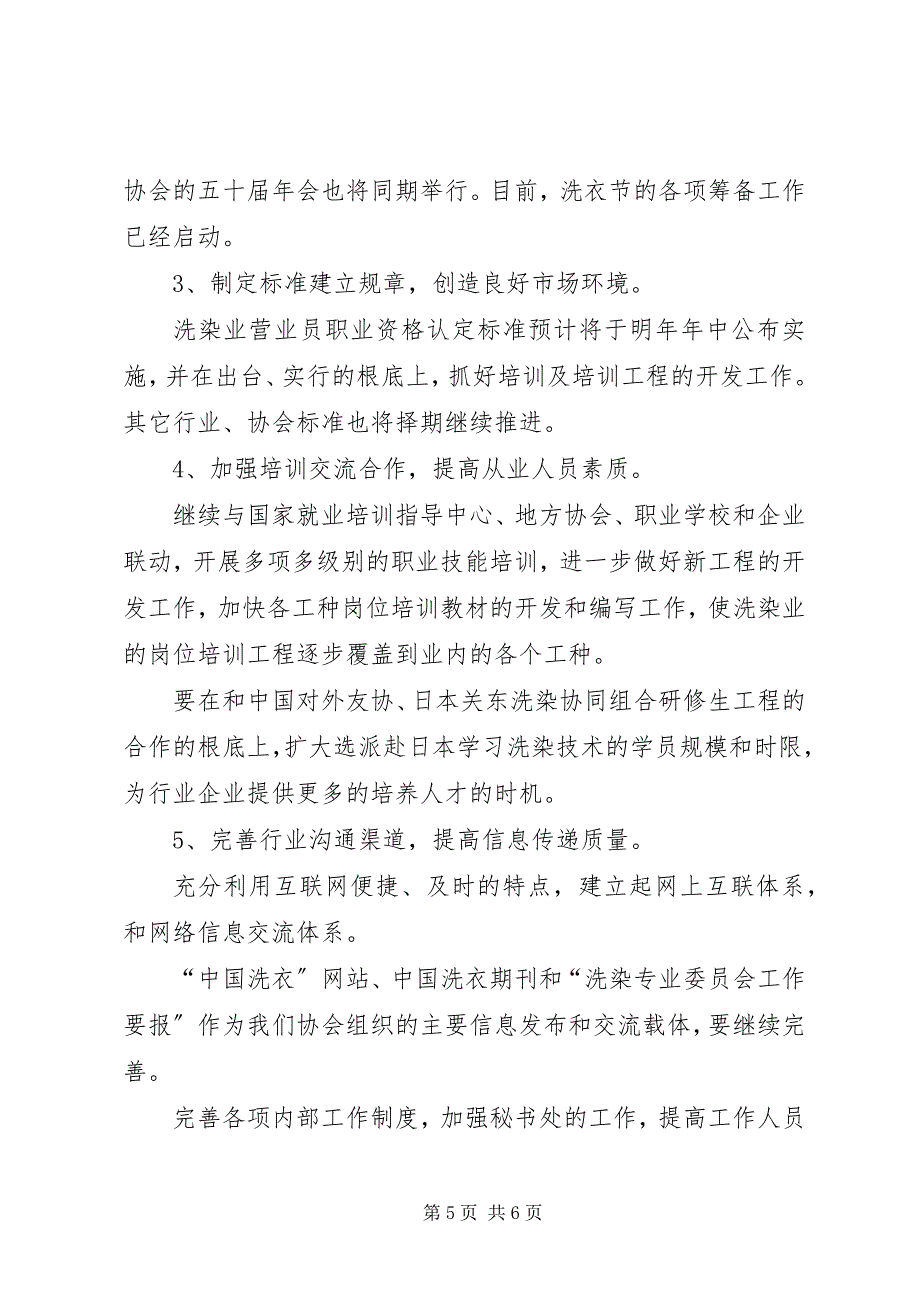 协会的五十届年会也将同期举行。目前，洗衣节的各项筹备工作
已经启动。
3、制定标准建立规章，创造良好市场环境。
洗染业营业员职业资格认定标准预计将于明年年中公布实
施，并在出台、实行的根底上，抓好培训及培训工程的开发工作。
其它行业、协会标准也将择期继续推进。
4、加强培训交流合作，提高从业人员素质。
继续与国家就业培训指导中心、地方协会、职业学校和企业
联动，开展多项多级别的职业技能培训，进一步做好新工程的开
发工作，加快各工种岗位培训教材的开发和编写工作，使洗染业
的岗位培训工程逐步覆盖到业内的各个工种。
要在和中国对外友协、日本关东洗染协同组合研修生工程的
合作的根底上，扩大选派赴日本学习洗染技术的学员规模和时限，
为行业企业提供更多的培养人才的时机。
5、完善行业沟通渠道，提高信息传递质量。
充分利用互联网便捷、及时的特点，建立起网上互联体系，
和网络信息交流体系。
“中国洗衣〞网站、中国洗衣期刊和“洗染专业委员会工作
要报〞作为我们协会组织的主要信息发布和交流载体，要继续完
善。
完善各项内部工作制度，加强秘书处的工作，提高工作人员
第 5 页 共 6 页